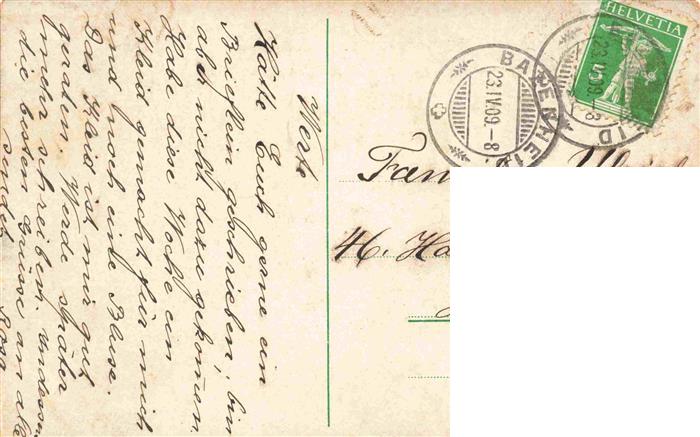 Werte
Hätte Euch gerne ein
Brieflein geschrieben, bin
aber nicht dazu gekommen,
Habe diese Woche ein
Kleid gemacht für mich
und noch eine Bluse.
Das Kleid ist mir gut
geraten. Werde später
mehr schreiben
die besten Grüsse an alle
sendet
Rosa
HELVETIA
23.IV.09.-8
Fam